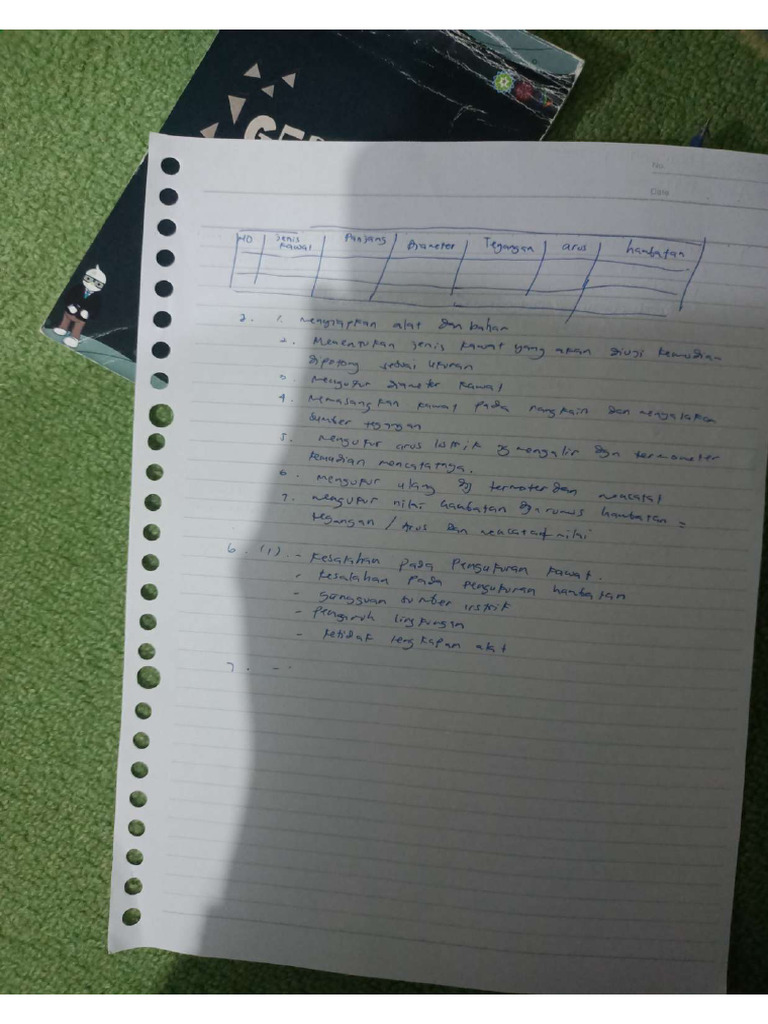 GE
No.
Date
NO | Jenis kawat | Panjang | Diameter | Tegangan | arus | hambatan
2. 1. Menyiapkan alat dan bahan
2. Menentukan jenis kawat yang akan diuji kemudian
dipotong sesuai ukuran
3. Mengukur diameter kawat
4. Memasangkan kawat pada rangkain dan menyalakan
sumber tegangan
5. Mengukur arus listrik yg mengalir dgn termometer
kemudian mencatatnya.
6. Mengukur ulang dg termoter dan mencatat
7. Mengukur nilai hambatan dgn rumus hambatan =
tegangan / Arus dan mencatat nilai
6. (1). - kesalahan pada pengukuran kawat.
- kesalahan pada pengukuran hambatan
- gangguan sumber listrik
- pengaruh lingkungan
- ketidak lengkapan alat
7. - .